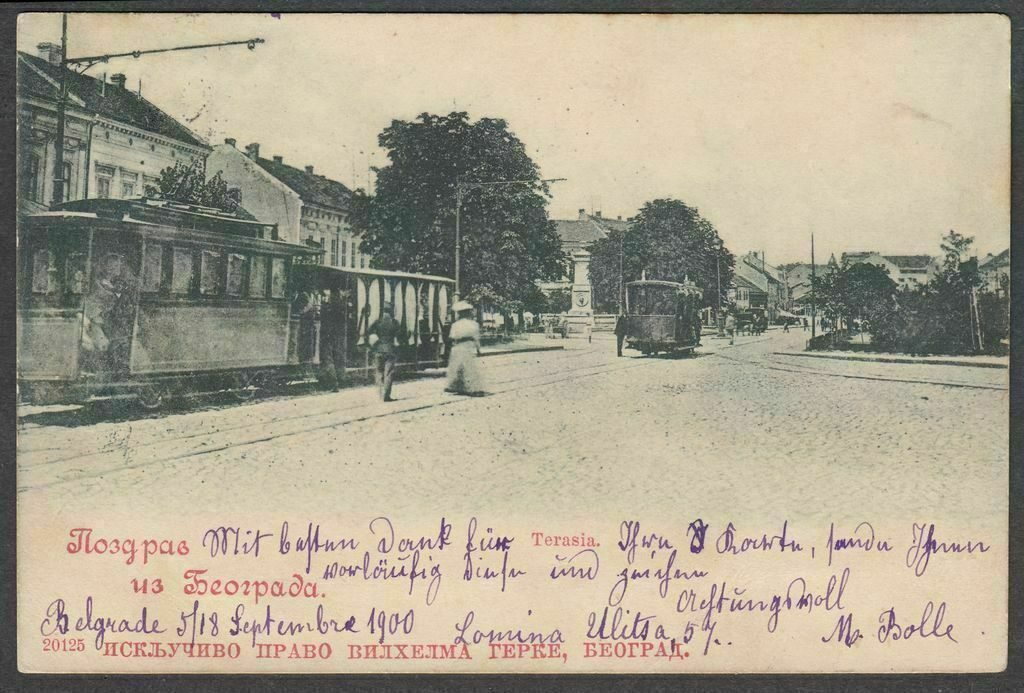 Поздрав
из Београда.
Terasia.
Mit besten Dank für Ihre Karte, sende Ihnen
vorläufig diese und zeichne
Achtungsvoll
Belgrade 5/18 Septembre 1900 Lomina Ulitsa, 57. M. Bolle
20125 ИСКЉУЧИВО ПРАВО ВИЛХЕЛМА ГЕРКЕ, БЕОГРАД.